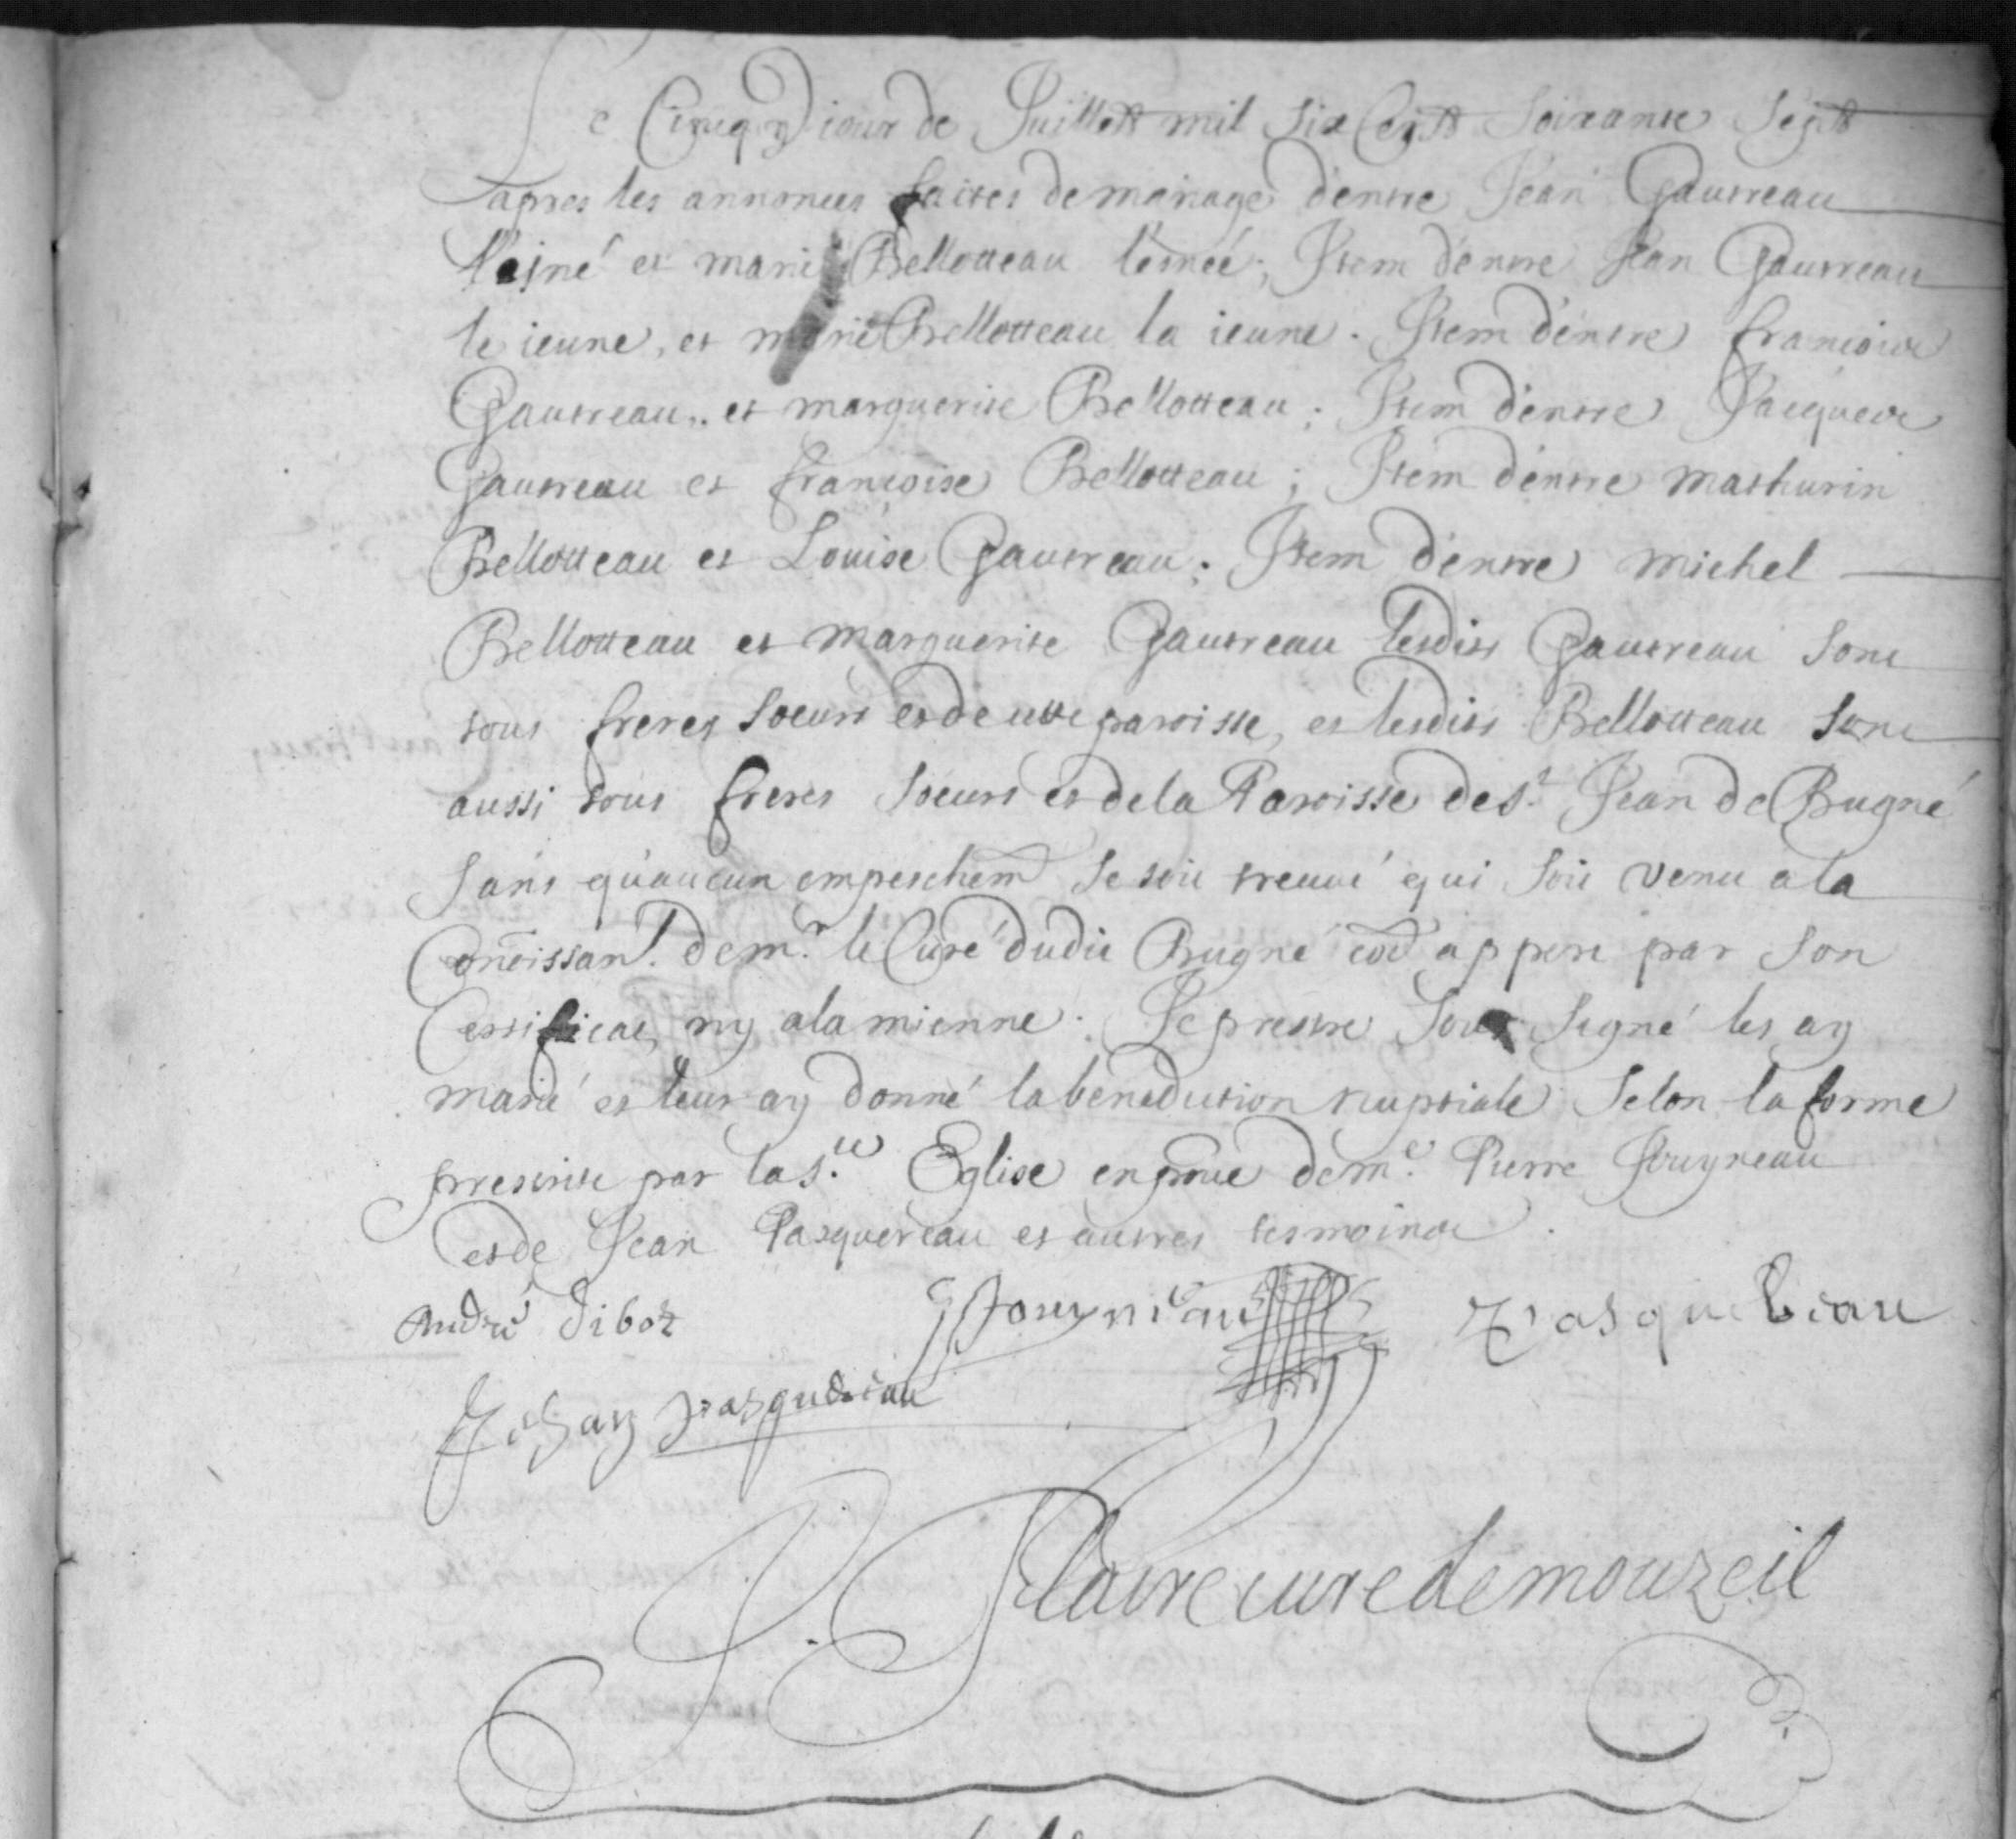 Le Cinqe iour de Juillett mil six centt soixante septt
apres les annonces faites de mariage d'entre Jean Gautreau
l'aisné et marie Bellotteau l'esnée; Item d'entre Jean Gautreau
le ieune, et marie Bellotteau la ieune. Item d'entre francois
Gautreau. et marguerite Bellotteau; Item d'entre Jacques
Gautreau et francoise Bellotteau; Item d'entre mathurin
Bellotteau et Louise Gautreau; Item d'entre michel
Bellotteau et marguerite Gautreau lesdits Gautreau sont
tous freres soeurs et de cette paroisse, et lesdits Bellotteau sont
aussi tous freres soeurs et de la Paroisse de St Jean de Bugné
sans qu'aucun empeschem se soit treuué qui soit venu a la
Conoissan. de mr le Curé dudit Bugné appert par son
Certificat, ny a la mienne. Je prestre Sous signé les ay
marié et leur ay donné la benediction nuptiale selon la forme
prescrite par la ste Eglise en pnce de me Pierre
et de Jean Pasquereau et autres tesmoins.
André Dibot Pasquereau
Jehan pasquereau
curé de mouzeil